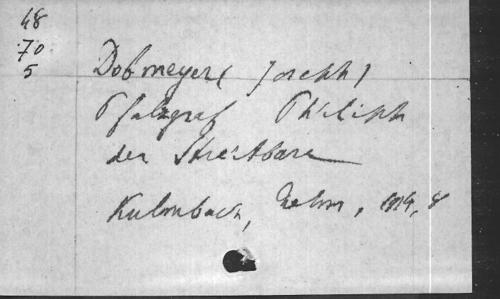 48
70
5
Dobmeyer (Joseph)
Pfalzgraf Philipp
der Streitbare
Kulmbach, Rehm, 1914, 8